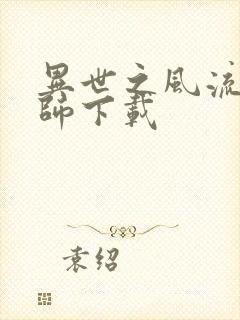 異世之風流
師下載
袁绍